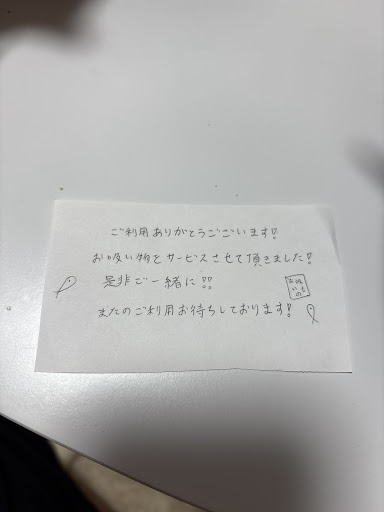 ご利用ありがとうございます!!
お吸い物をサービスさせて頂きました!!
是非ご一緒に!!
お吸いもの
またのご利用お待ちしております!!